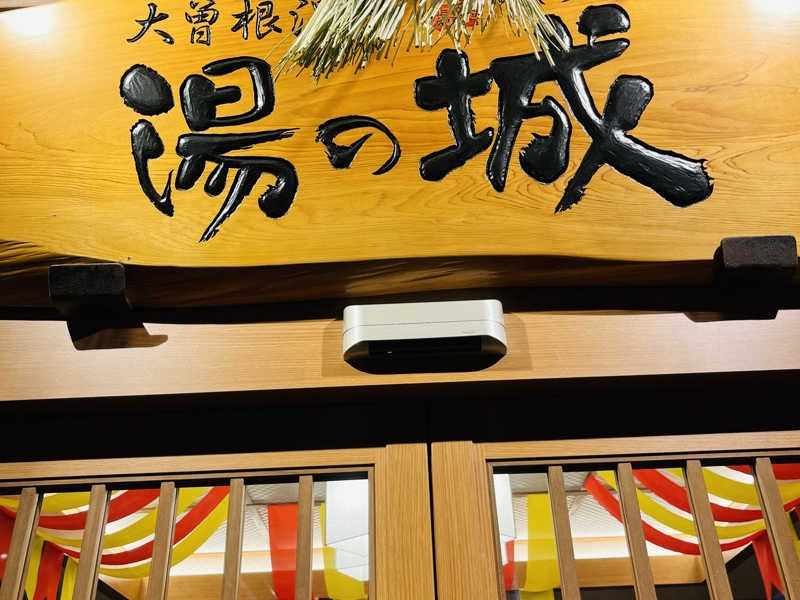 大曽根温
湯の城